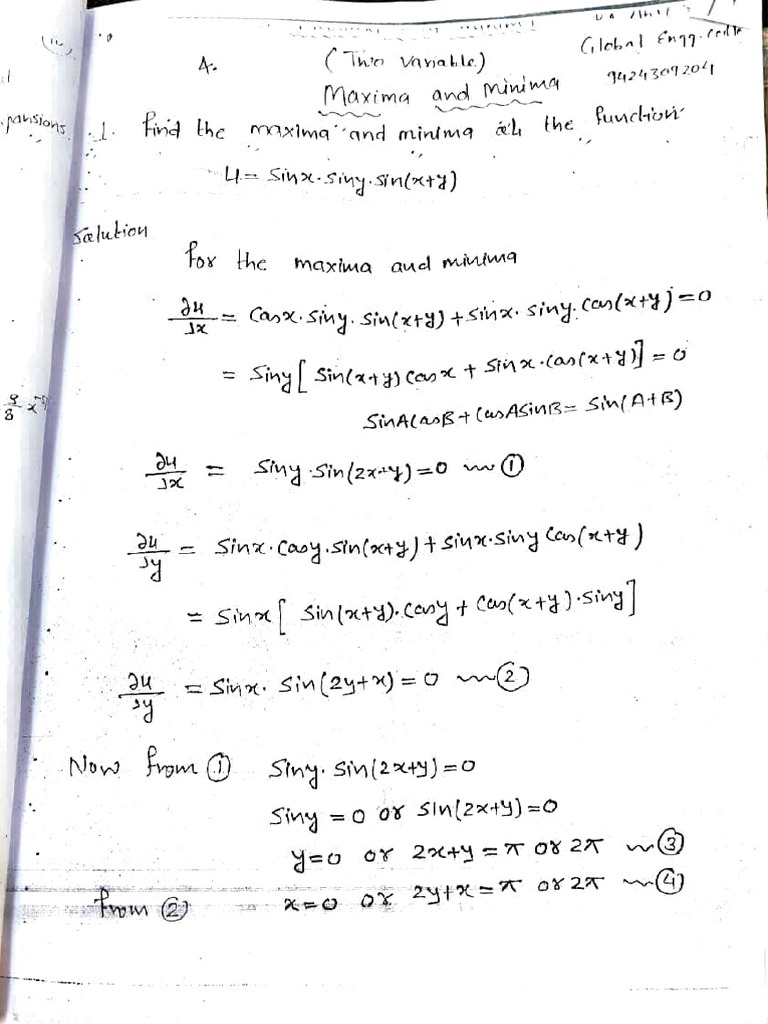 Global Engg.
A. (Two variable)
9424309204
Maxima and Minima
pansions
1. Find the maxima and minima of the function
u = sinx·siny·sin(x+y)
Solution
For the maxima and minima
∂u/∂x = Cosx·siny·sin(x+y) + sinx·siny·Cos(x+y) = 0
= siny[ sin(x+y) Cosx + sinx·Cos(x+y)] = 0
SinA CosB + CosA SinB = Sin(A+B)
∂u/∂x = siny·sin(2x+y) = 0 ①
∂u/∂y = sinx·Cosy·sin(x+y) + sinx·siny Cos(x+y)
= sinx[ sin(x+y)·Cosy + Cos(x+y)·siny]
∂u/∂y = sinx· sin(2y+x) = 0 ②
Now from ① siny· sin(2x+y) = 0
siny = 0 or sin(2x+y) = 0
y = 0 or 2x+y = π or 2π ③
from ② x = 0 or 2y+x = π or 2π ④